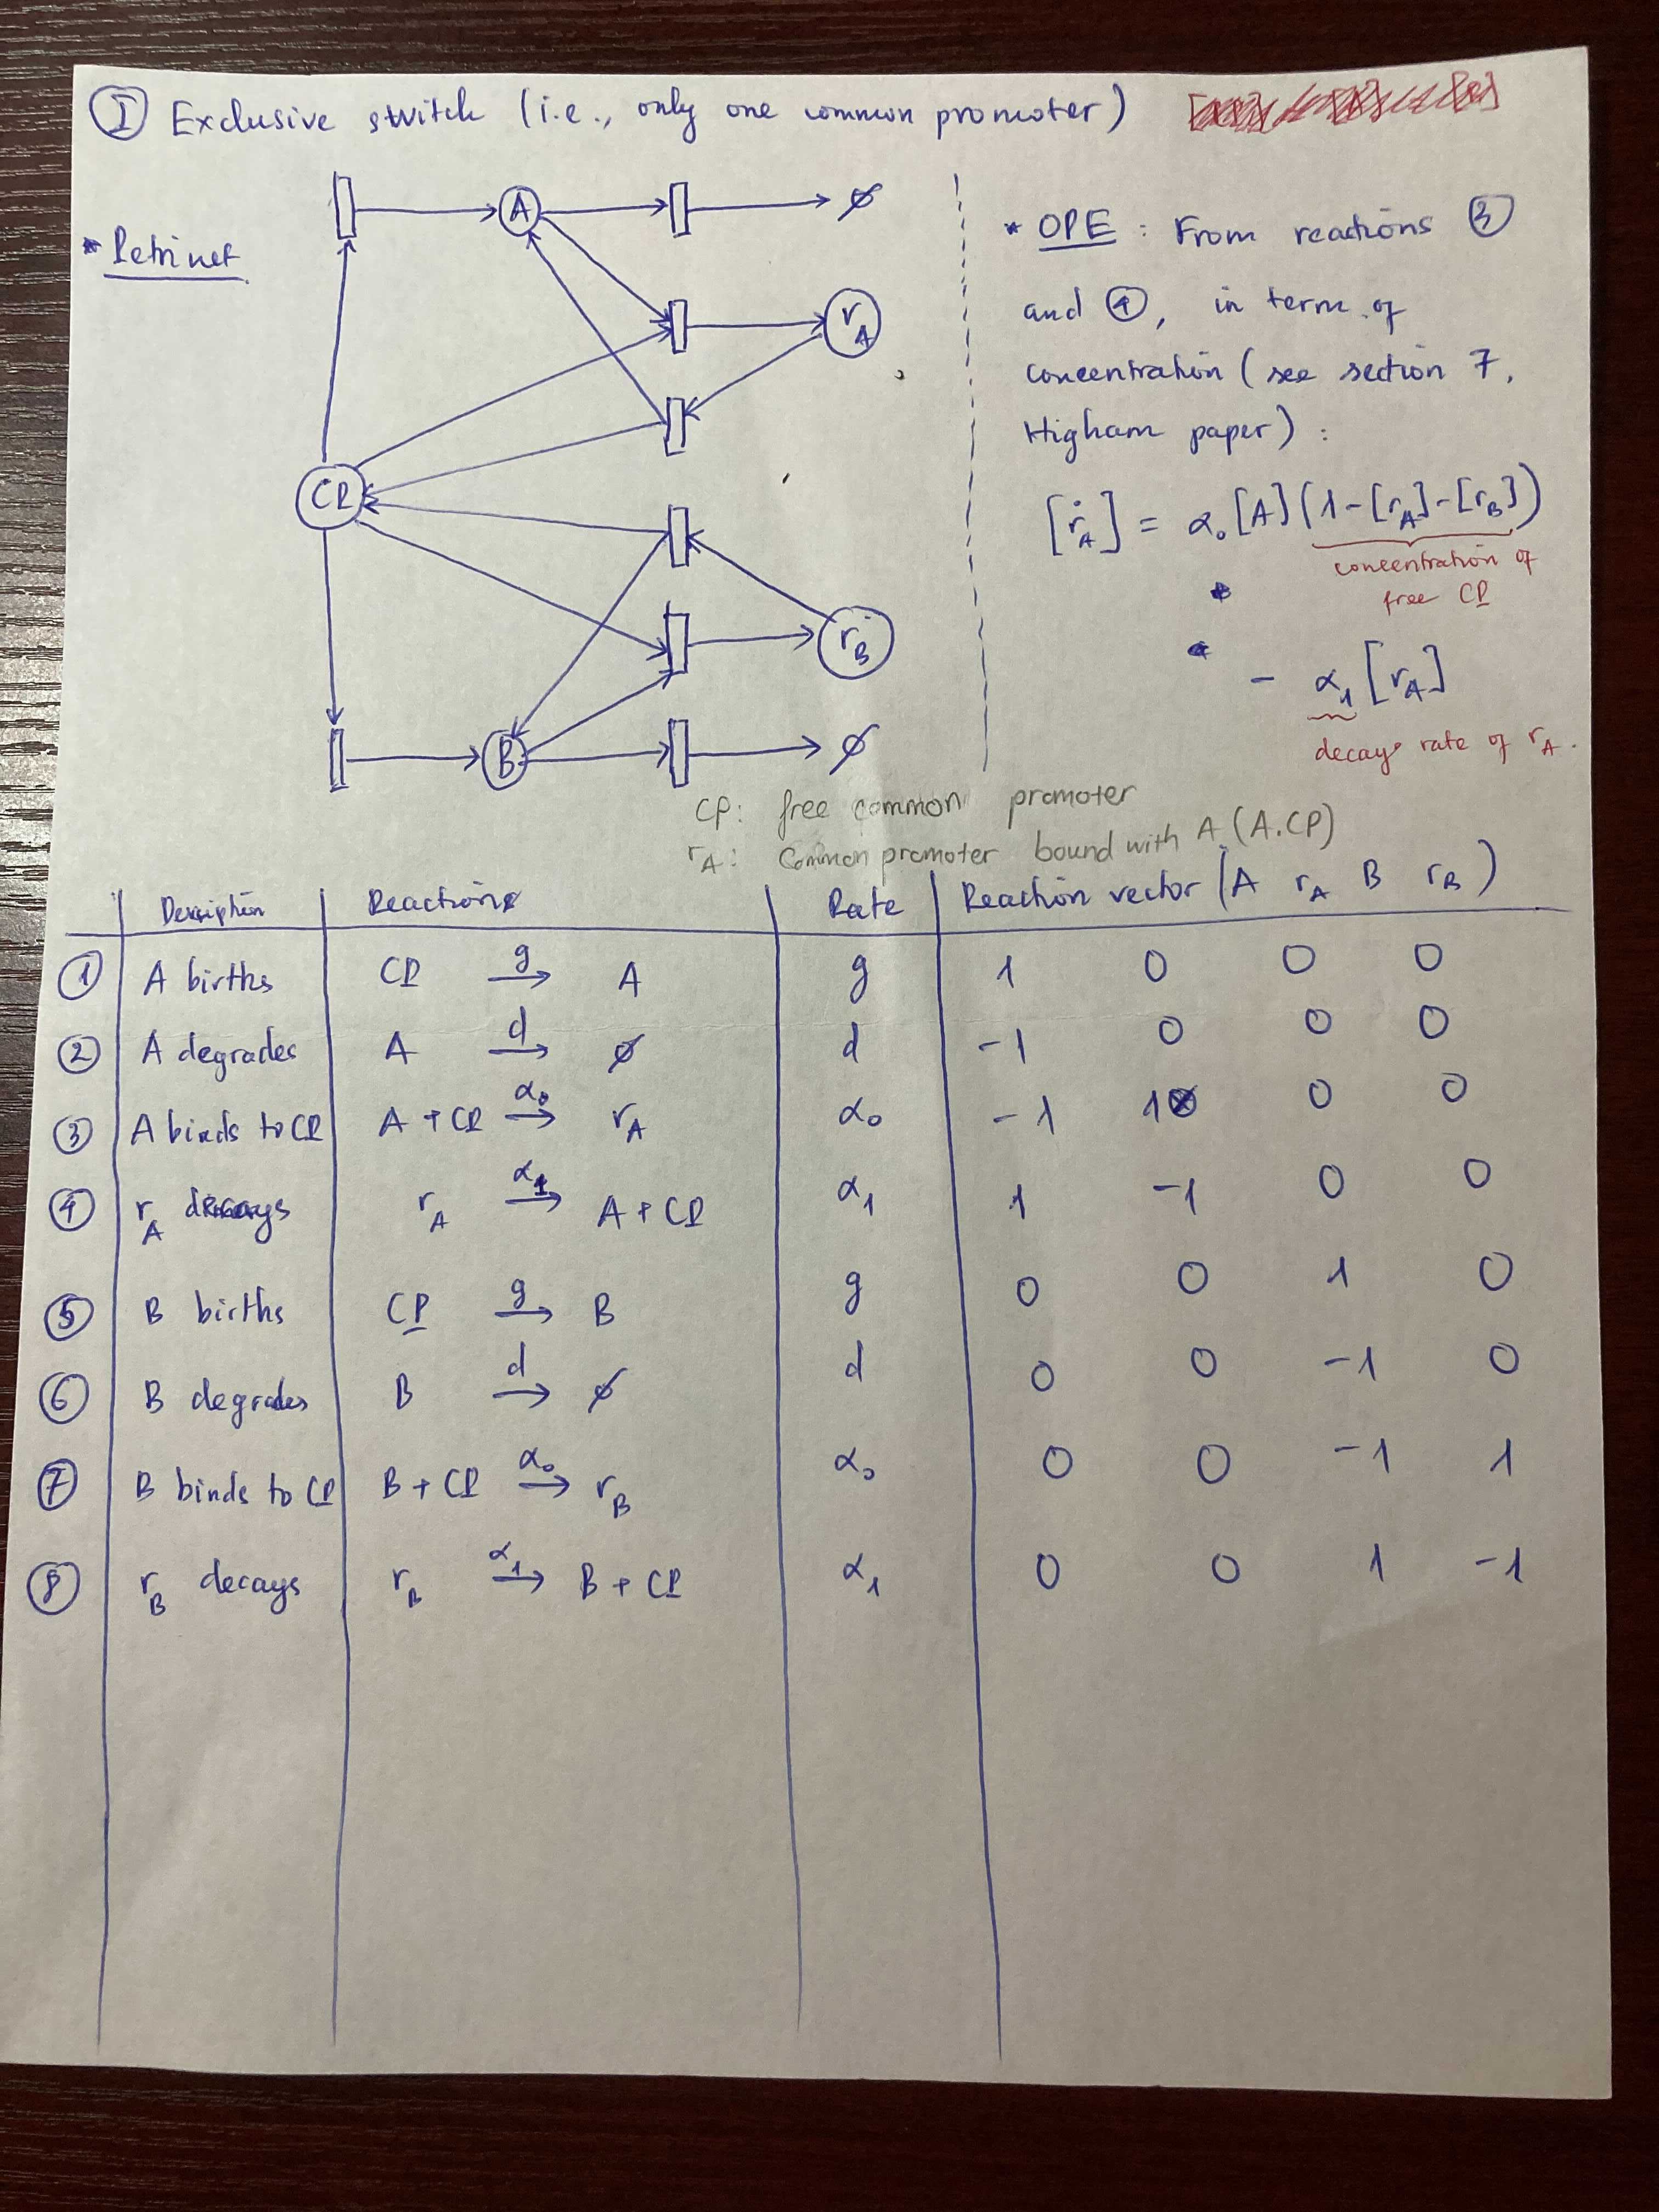 I Exclusive switch (i.e., only one common promoter)
* Petri net
A
∅
r_A
CP
r_B
B
∅
* ODE : From reactions ③
and ④, in term of
concentration (see section 7,
Higham paper) :
[ṙ_A] = α₀ [A] (1 - [r_A] - [r_B])
concentration of
free CP
- α₁ [r_A]
decays rate of r_A.
CP: free common promoter
r_A: Common promoter bound with A (A.CP)
Description Reactions Rate Reaction vector (A r_A B r_B)
① A births CP →g A g 1 0 0 0
② A degrades A →d ∅ d -1 0 0 0
③ A binds to CP A + CP →α₀ r_A α₀ -1 1 0 0
④ r_A decays r_A →α₁ A + CP α₁ 1 -1 0 0
⑤ B births CP →g B g 0 0 1 0
⑥ B degrades B →d ∅ d 0 0 -1 0
⑦ B binds to CP B + CP →α₀ r_B α₀ 0 0 -1 1
⑧ r_B decays r_B →α₁ B + CP α₁ 0 0 1 -1